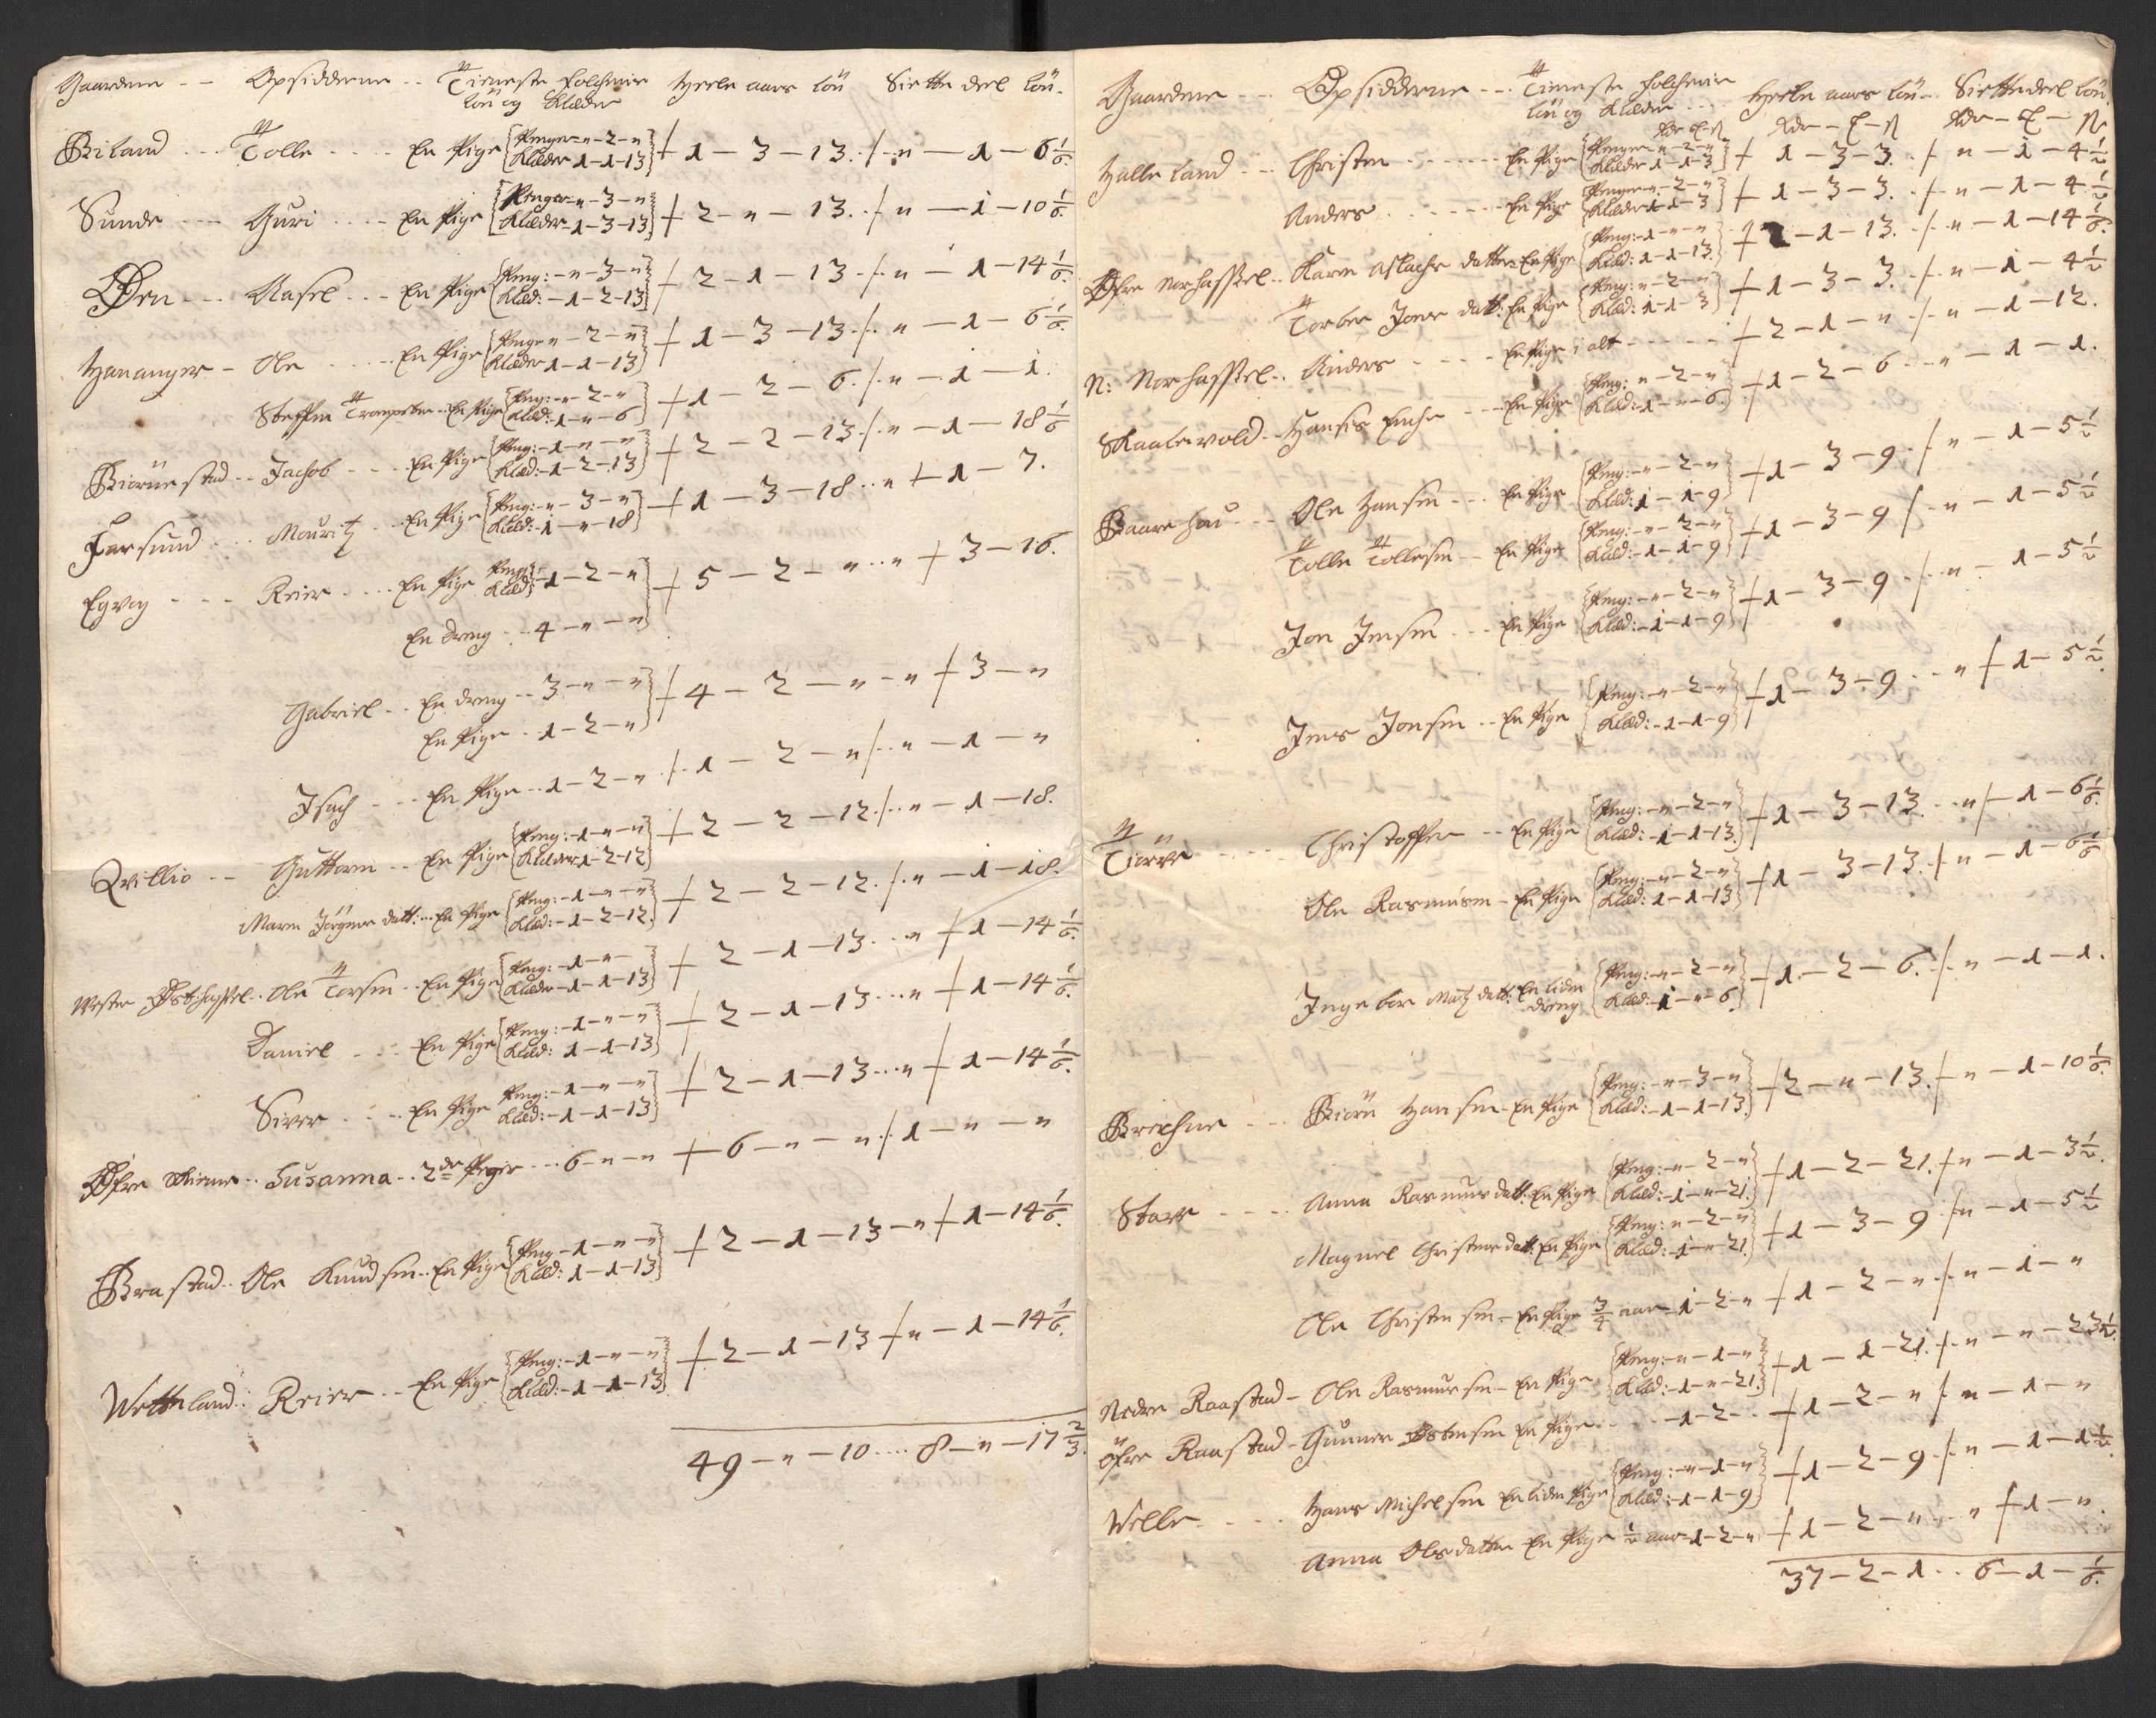 Gaardene -- Opsidderne -- Tieneste folchenis Heele aars lön Siette deel lön.
lön og Klæder
Biland --- Tolle ---- En Pige Penger - n - 2 - n 1 - 3 - 13. n - 1 - 6 1/6.
Klæder 1 - 1 - 13
Sunde --- Guri ---- En Pige Penger - n - 3 - n 2 - n - 13. n - 1 - 10 1/6.
Klæder - 1 - 3 - 13
Øen --- Aasel --- En Pige Peng: - n - 3 - n 2 - 1 - 13. n - 1 - 14 1/6.
Klæd: - 1 - 2 - 13
Hananger - Ole ---- En Pige Penge n - 2 - n 1 - 3 - 13. n - 1 - 6 1/6.
Klæder 1 - 1 - 13
Steffen -- En Pige Peng: - n - 2 - n 1 - 2 - 6. n - 1 - 1.
Klæd: 1 - n - 6
Biörnestad -- Jachob --- En Pige Peng: - 1 - n - n 2 - 2 - 13. n - 1 - 18 1/6
Klæd: - 1 - 2 - 13
Farsund --- Mouritz --- En Pige Peng: - n - 3 - n 1 - 3 - 18 -- n 1 - 7.
Klæd: - 1 - n - 18
Egvog --- Reier ---- En Pige Peng: Klæd: 1 - 2 - n 5 - 2 - n -- n 3 - 16.
En dreng -- 4 - n - n
Gabriel -- En dreng -- 3 - n - n 4 - 2 - n - n 3 - n
En Pige -- 1 - 2 - n
Isach --- En Pige -- 1 - 2 - n 1 - 2 - n n - 1 - n
Qvillio -- Guttorm -- En Pige Peng: - 1 - n - n 2 - 2 - 12. n - 1 - 18.
Klæder 1 - 2 - 12
Maren Jörgens datt: -- En Pige Peng: - 1 - n - n 2 - 2 - 12. n - 1 - 18.
Klæd: - 1 - 2 - 12.
Wester Østhassel -- Ole Torsen -- En Pige Peng: - 1 - n - 2 - 1 - 13 -- n 1 - 14 1/6.
Klæder - 1 - 1 - 13
Daniel --- En Pige Peng: - 1 - n - n 2 - 1 - 13 -- n 1 - 14 1/6.
Klæd: 1 - 1 - 13
Siver ---- En Pige Peng: - 1 - n - n 2 - 1 - 13 -- n 1 - 14 1/6.
Klæd: - 1 - 1 - 13
Øfre -- Susanna -- 2de Piger --- 6 - n - n 6 - n - n 1 - n - n
Brastad -- Ole Knudsen -- En Pige Peng - 1 - n - n 2 - 1 - 13 - n 1 - 14 1/6.
Klæd: 1 - 1 - 13
Wetteland: Reier -- En Pige Peng: - 1 - n - n 2 - 1 - 13 n - 1 - 14 1/6.
Klæd: - 1 - 1 - 13
49 - n - 10 ---- 8 - n - 17 2/3.
Gaardene --- Opsidderne --- Tieneste folchenis Heele aars lön -- Siette deel lön.
lön og Klæder ---
Halleland --- Christen ------ En Pige Penger - n - 2 - n 1 - 3 - 3. n - 1 - 4 1/2
Klæder 1 - 1 - 3
Anders ------ En Pige Penger - n - 2 - n 1 - 3 - 3. n - 1 - 4 1/2
Klæder 1 - 1 - 3
Øfre Norhassel -- Karen Aslachs datter En Pige Peng: - 1 - n - n 2 - 1 - 13. n - 1 - 14 1/6.
Klæd: 1 - 1 - 13
Torber Jens datt: En Pige Peng: n - 2 - n 1 - 3 - 3. n - 1 - 4 1/2
Klæd: 1 - 1 - 3
N: Norhassel -- Anders ---- En Pige i alt ---- 2 - 1 - n n - 1 - 12.
Skaalevold -- Hanses Enche --- En Pige Peng: n - 2 - n 1 - 2 - 6 -- n - 1 - 1.
Klæd: 1 - n - 6.
Baarehau --- Ole Hansen --- En Pige Peng: - n - 2 - n 1 - 3 - 9. n - 1 - 5 1/2
Klæd: 1 - 1 - 9
Tolle Tollesen -- En Pige Peng: - n - 2 - n 1 - 3 - 9 n - 1 - 5 1/2
Klæd: - 1 - 1 - 9
Jon Jensen --- En Pige Peng: - n - 2 - n 1 - 3 - 9. n - 1 - 5 1/2
Klæd: - 1 - 1 - 9
Jens Jonsen -- En Pige Peng: - n - 2 - n 1 - 3 - 9 -- n 1 - 5 1/2.
Klæd: - 1 - 1 - 9
Tiörve ---- Christoffer -- En Pige Peng: - n - 2 - n 1 - 3 - 13 -- n 1 - 6 1/6.
Klæd: - 1 - 1 - 13.
Ole Rasmusen - En Pige Peng: - n - 2 - n 1 - 3 - 13. n - 1 - 6 1/6
Klæd: 1 - 1 - 13
Ingebor Matz datt: En liden dreng Peng: - n - 2 - n 1 - 2 - 6. n - 1 - 1.
Klæd: - 1 - n - 6.
Brechne --- Biörn Hansen - En Pige Peng: - n - 3 - n 2 - n - 13. n - 1 - 10 1/6.
Klæd: - 1 - 1 - 13.
Stave ---- Anna Rasmus datt: En Pige Peng: - n - 2 - n 1 - 2 - 21. n - 1 - 3 1/2.
Klæd: - 1 - n - 21.
Magnel Christens datt: En Pige Peng: n - 2 - n 1 - 3 - 9 n - 1 - 5 1/2
Klæd: - 1 - n - 21.
Ole Christensen - En Pige 3/4 aar - 1 - 2 - n 1 - 2 - n n - 1 - n
Nedre Raastad - Ole Rasmussen - En Pige Peng: - n - 1 - n 1 - 1 - 21. n - n - 23 1/2.
Klæd: - 1 - n - 21.
Öfre Raastad - Gunner Ostensen En Pige ---- 1 - 2 -- 1 - 2 - n n - 1 - n
Welle ---- Hans Michelsen En liden Pige Peng: - n - 1 - n 1 - 2 - 9 n - 1 - 1 1/2.
Klæd: - 1 - 1 - 9
Anna Olsdatter En Pige 1/2 aar 1 - 2 - n 1 - 2 - n -- n 1 - n.
37 - 2 - 1 -- 6 - 1 - 1/6.